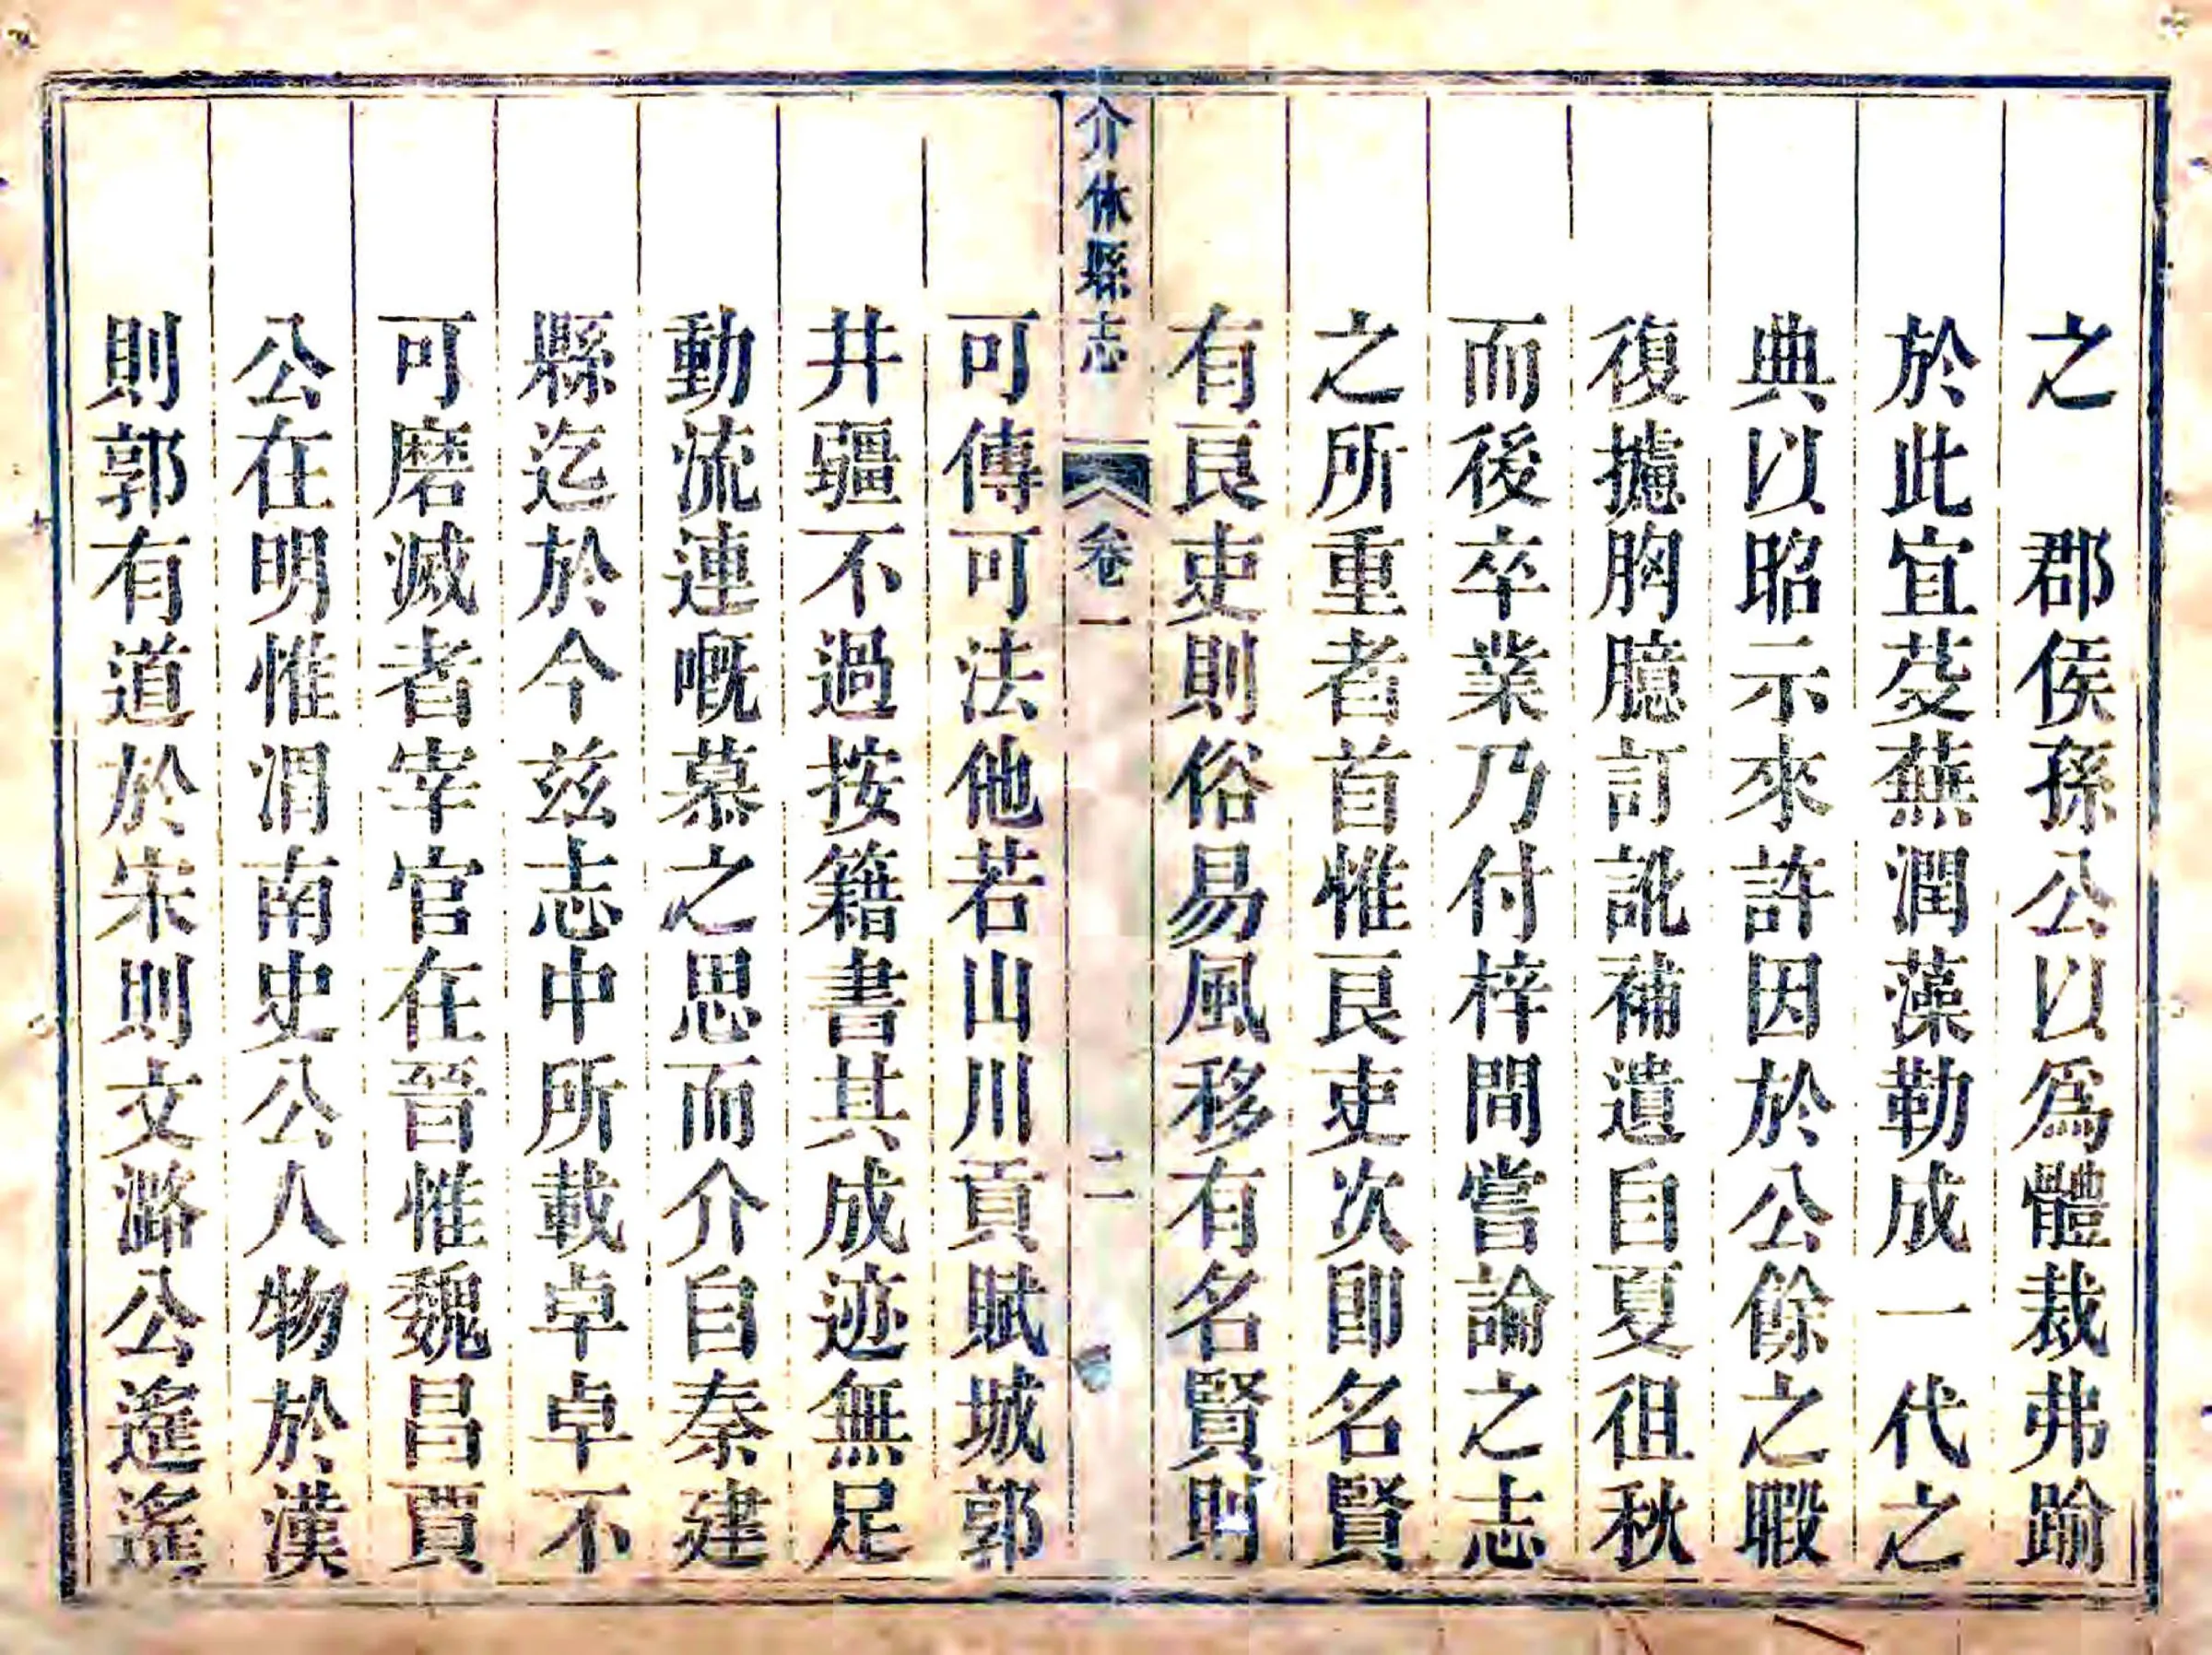 之　郡侯孫公以爲體裁弗踰
於此宜芟蕪潤藻勒成一代之
典以昭示來許因於公餘之暇
復攄胸臆訂訛補遺自夏徂秋
而後卒業乃付梓間嘗論之志
之所重者首惟良吏次卽名賢
有良吏則俗易風移有名賢則
介休縣志 卷一 二
可傳可法他若山川貢賦城郭
井疆不過按籍書其成迹無足
動流連嘅慕之思而介自秦建
縣迄於今茲志中所載卓卓不
可磨滅者宰官在晉惟魏昌賈
公在明惟渭南史公人物於漢
則郭有道於宋則文潞公遙遙